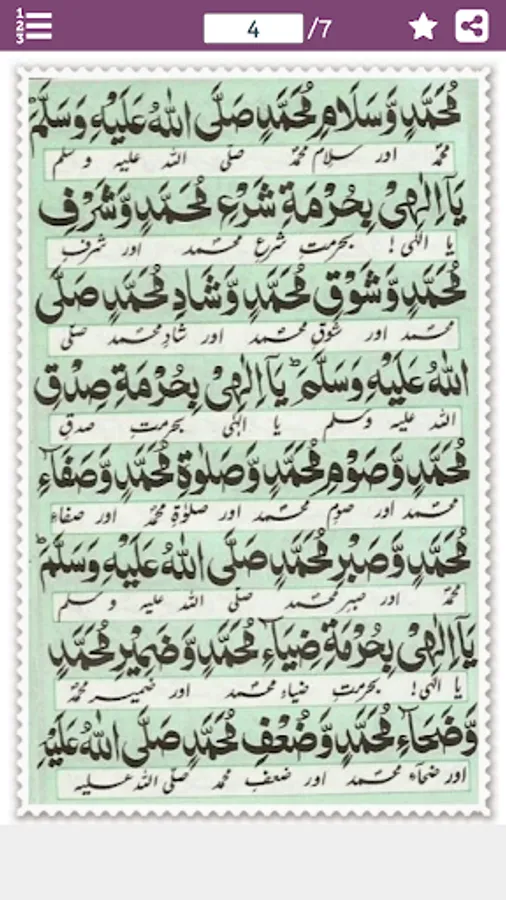 1
2
3
4 /7
مُحَمَّدٍ وَّسَلَامِ مُحَمَّدٍ صَلَّی اللّٰهُ عَلَیْهِ وَسَلَّمَ
محمدؐ اور سلام محمدؐ صلی اللہ علیہ وسلم
یَآ اِلٰهِیْ بِحُرْمَةِ شَرْعِ مُحَمَّدٍ وَّشَرْفِ
یا الٰہی! بحرمتِ شرعِ محمد اور شرفِ
مُحَمَّدٍ وَّشَوْقِ مُحَمَّدٍ وَّشَادِ مُحَمَّدٍ صَلَّی
محمد اور شوقِ محمد اور شادِ محمد صلی
اللّٰهُ عَلَیْهِ وَسَلَّمَ ؕ یَآ اِلٰهِیْ بِحُرْمَةِ صِدْقِ
اللہ علیہ وسلم یا الٰہی بحرمتِ صدقِ
مُحَمَّدٍ وَّصَوْمِ مُحَمَّدٍ وَّصَلٰوةِ مُحَمَّدٍ وَّصَفَآءِ
محمد اور صومِ محمد اور صلوٰةِ محمدؐ اور صفاءِ
مُحَمَّدٍ وَّصَبْرِ مُحَمَّدٍ صَلَّی اللّٰهُ عَلَیْهِ وَسَلَّمَ ؕ
محمدؐ اور صبرِ محمد صلی اللہ علیہ وسلم
یَآ اِلٰهِیْ بِحُرْمَةِ ضِیَآءِ مُحَمَّدٍ وَّضَمِیْرِ مُحَمَّدٍ
یا الٰہی! بحرمتِ ضیاءِ محمد اور ضمیر محمدؐ
وَّضَحَآءِ مُحَمَّدٍ وَّضُعْفِ مُحَمَّدٍ صَلَّی اللّٰهُ عَلَیْهِ
اور ضحاء محمد اور ضعفِ محمد صلی اللہ علیہ